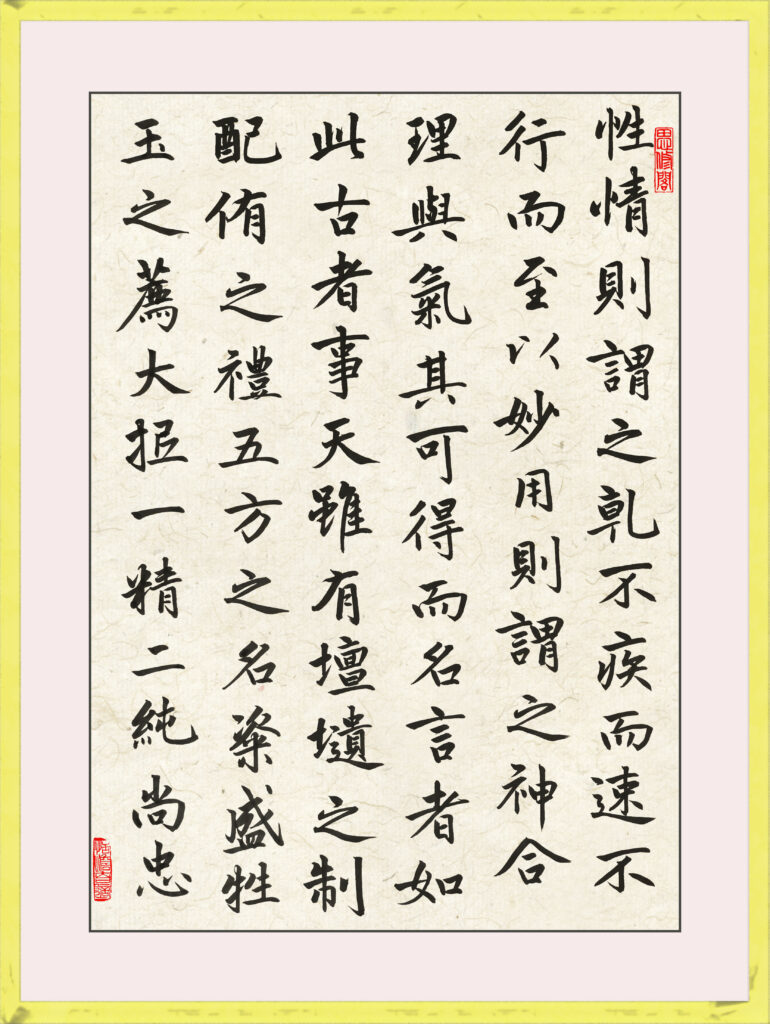 思修閣
性情則謂之乾不疾而速不
行而至以妙用則謂之神合
理與氣其可得而名言者如
此古者事天雖有壇壝之制
配侑之禮五方之名粢盛牲
玉之薦大抵一精二純尚忠